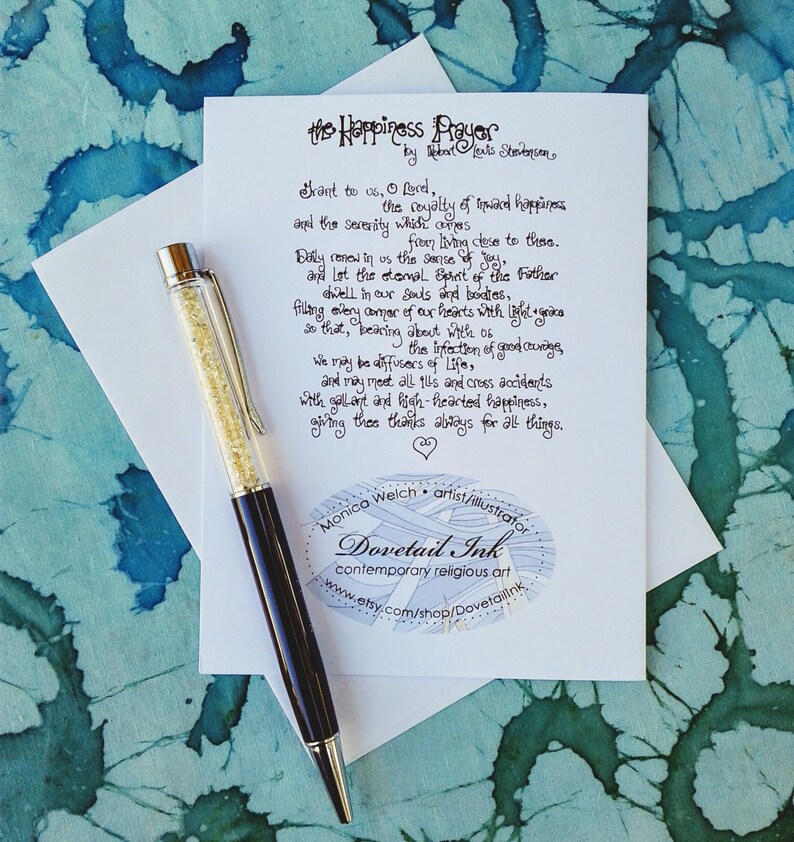 the Happiness Prayer
by Robert Louis Stevenson
Grant to us, O Lord,
the royalty of inward happiness
and the serenity which comes
from living close to thee.
Daily renew in us the sense of joy,
and let the eternal Spirit of the Father
dwell in our souls and bodies,
filling every corner of our hearts with light & grace
so that, bearing about with us
the infection of good courage,
we may be diffusers of Life,
and may meet all ills and cross accidents
with gallant and high-hearted happiness,
giving thee thanks always for all things.
Monica Welch • artist/illustrator
Dovetail Ink
contemporary religious art
www.etsy.com/shop/DovetailInk